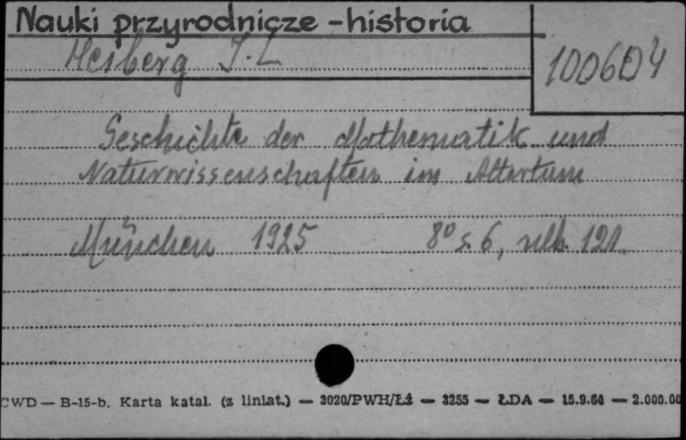 Nauki przyrodnicze - historia
Heiberg J. L
100604
Geschichte der Mathematik und
Naturwissenschaften im Altertum
München 1925 8° s. 6, nlb. 121.
CWD — B-15-b. Karta katal. (z liniat.) — 3020/PWH/Łź — 3255 — ŁDA — 15.9.64 — 2.000.00